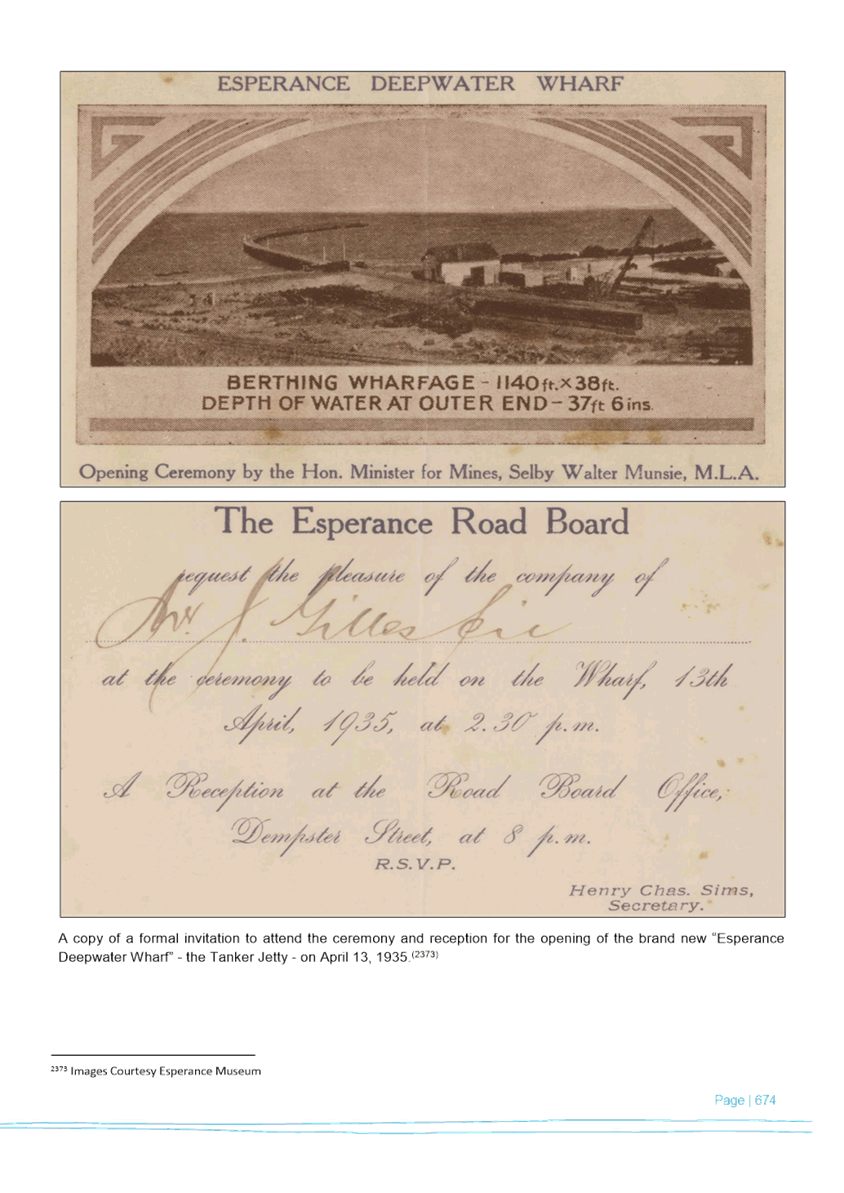 ESPERANCE DEEPWATER WHARF
BERTHING WHARFAGE - 1140 ft. × 38 ft.
DEPTH OF WATER AT OUTER END - 37ft 6 ins.
Opening Ceremony by the Hon. Minister for Mines, Selby Walter Munsie, M.L.A.
The Esperance Road Board
request the pleasure of the company of
Mr. J. Gillespie
at the ceremony to be held on the Wharf, 13th
April, 1935, at 2.30 p.m.
A Reception at the Road Board Office,
Dempster Street, at 8 p.m.
R.S.V.P.
Henry Chas. Sims,
Secretary.
A copy of a formal invitation to attend the ceremony and reception for the opening of the brand new “Esperance
Deepwater Wharf” - the Tanker Jetty - on April 13, 1935.(2373)
2373 Images Courtesy Esperance Museum
Page | 674